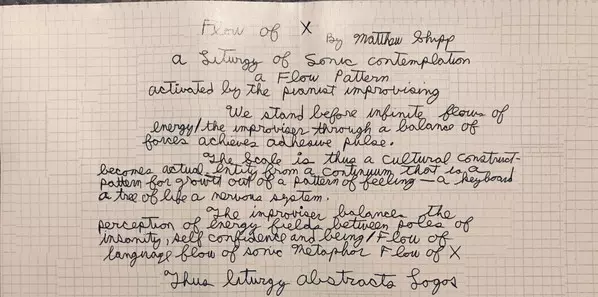 Flow of X By Matthew Shipp
a Liturgy of Sonic contemplation
a Flow Pattern
activated by the pianist improvising
We stand before infinite flows of
energy/the improviser through a balance of
forces achieves adhesive pulse.
The Scale is thus a cultural construct-
becomes actual entity from a continuum that is a
pattern for growth out of a pattern of feeling - a keyboard
a tree of life a nervous system.
The improviser balances the
perception of energy fields between poles of
insanity, self confidence and being/Flow of
language flow of sonic metaphor Flow of X
Thus liturgy abstracts Logos